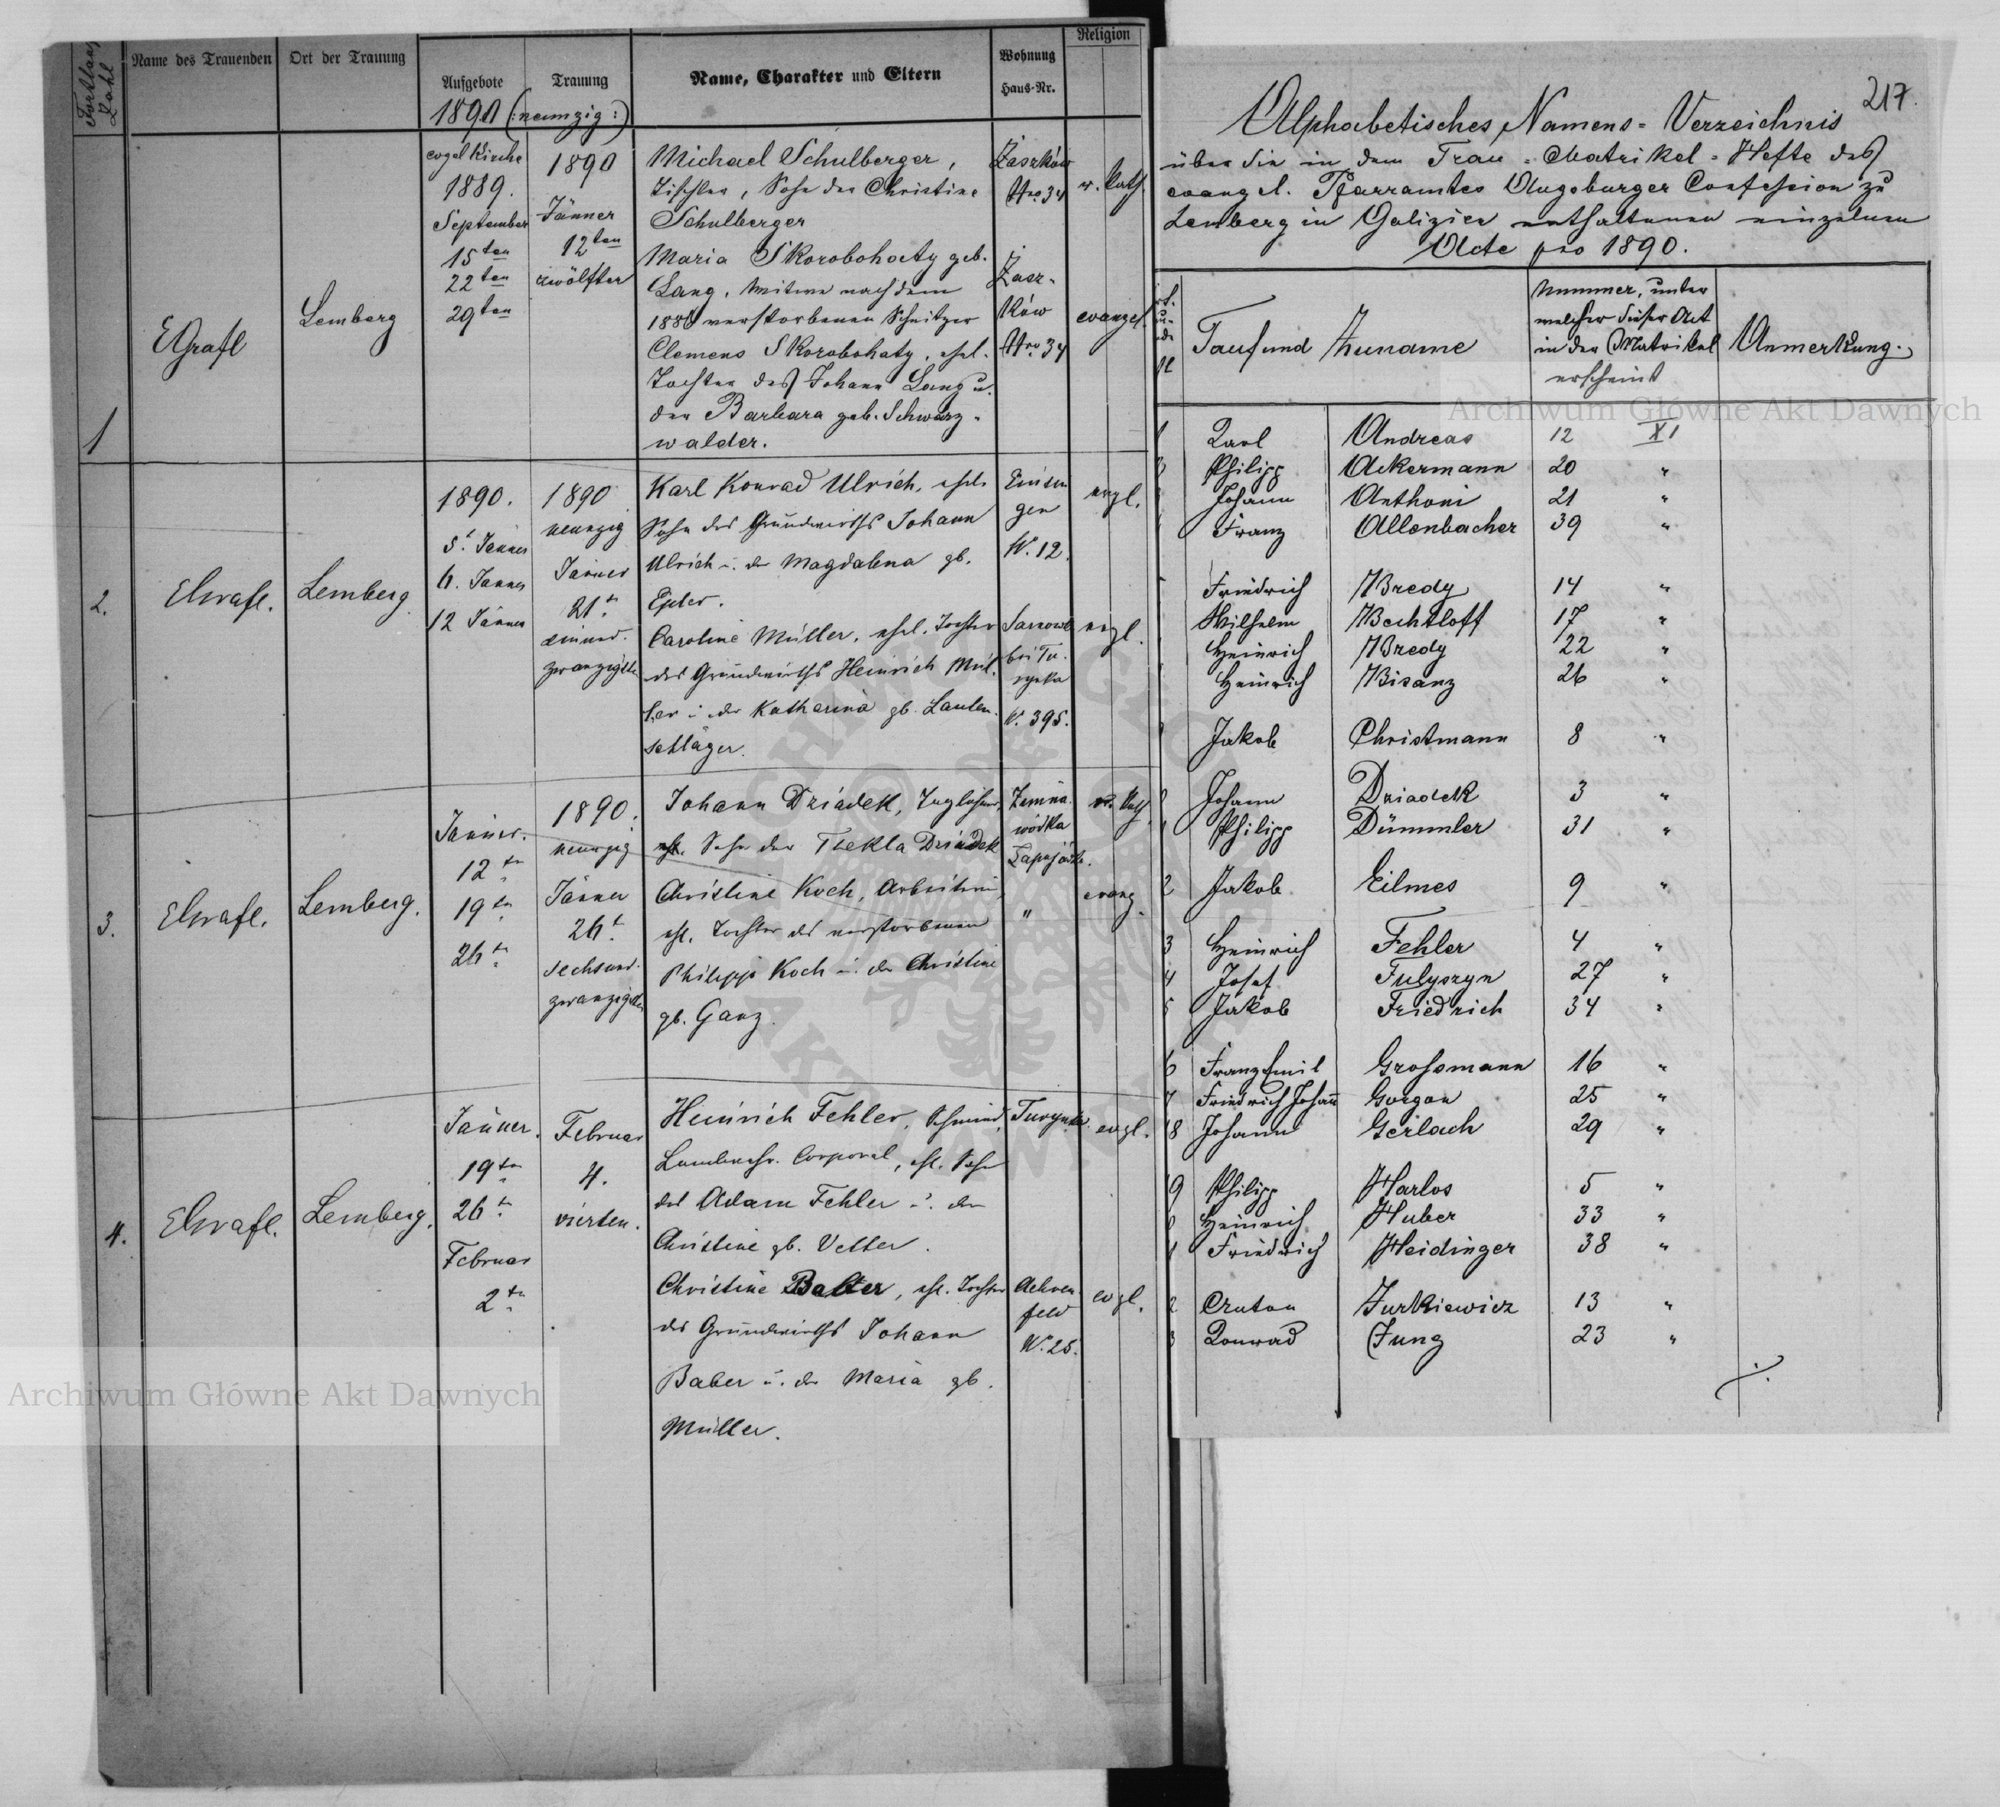 Fortlauf. Zahl
Name des Trauenden
Ort der Trauung
Aufgebote
Trauung
Name, Charakter und Eltern
Wohnung
Haus-Nr.
Religion
1890 (: neunzig :)
1
EGrafl
Lemberg
evgel Kirche
1889.
September
15ten
22ten
29ten
1890
Jänner
12ten
zwölften
Michael Schulberger,
Tischler, Sohn der Christine
Schulberger
Maria Skorobohaty geb.
Lang, Witwe nach dem
verstorbenen Schnitzer
Clemens Skorobohaty, ehel.
Tochter des Johann Lang u.
der Barbara geb. Schwarz-
walder.
Zaszków
Nro 34
Żasz-
ków
Nro 34
r. kath.
evangel.
2.
EGrafl.
Lemberg.
1890.
5t. Jänner
6. Jänner
12 Jänner
1890
neunzig
Jänner
21t.
einund-
zwanzigsten
Karl Konrad Ulrich, ehel.
Sohn des Grundwirths Johann
Ulrich u. der Magdalena gb.
Epler.
Caroline Müller, ehel. Tochter
des Grundwirths Heinrich Mül-
ler u. der Katharina gb. Lauten-
schläger.
Einsin-
gen
N. 12.
bei Tu-
rynka
N. 395.
evgl.
evgl.
3.
EGrafl.
Lemberg.
Jänner.
12tn
19tn
26tn
1890.
neunzig
Jänner
26t.
sechsund-
zwanzigsten
Johann Dziadek, Taglöhner,
ehl. Sohn der Thekla Dziadek
Christine Koch, Arbeiterin,
ehl. Tochter des verstorbenen
Philipp Koch u. der Christine
gb. Ganz.
Zimna-
wódka
"
r. kath.
evang.
4.
EGrafl.
Lemberg.
Jänner.
19tn
26tn
Februar
2tn
Februar
4.
vierten.
Heinrich Fehler, Schmied,
Landwehr. Corporal, ehl. Sohn
des Adam Fehler u. der
Christine gb. Vetter.
Christine Baber, ehl. Tochter
des Grundwirths Johann
Baber u. der Maria gb.
Müller.
Turynka
Aehren-
feld
N. 25.
evgl.
evgl.
217.
Alphabetisches Namens-Verzeichnis
über die in dem Trau-Matrikel-Hefte des
evangel. Pfarramtes Augsburger Confession zu
Lemberg in Galizien enthaltenen einzelnen
Acte pro 1890.
Tauf und Zuname
Nummer, unter
welcher dieser Act
in der Matrikel
erscheint
Anmerkung.
Karl Andreas 12 XI
Philipp Ackermann 20 "
Johann Anthoni 21 "
Franz Allenbacher 39 "
Friedrich Bredy 14 "
Wilhelm Bechtloff 17 "
Heinrich Bredy 22 "
Heinrich Bisanz 26 "
Jakob Christmann 8 "
Johann Dziadek 3 "
Philipp Dümmler 31 "
2 Jakob Eilmes 9 "
3 Heinrich Fehler 4 "
4 Josef Fulyszyn 27 "
5 Jakob Friedrich 34 "
6 Franz Emil Grossmann 16 "
7 Friedrich Johann Gorgon 25 "
18 Johann Gerlach 29 "
9 Philipp Harlos 5 "
0 Heinrich Huber 33 "
1 Friedrich Heidinger 38 "
2 Anton Jurkiewicz 13 "
3 Konrad Jung 23 "
./.
Archiwum Główne Akt Dawnych
Archiwum Główne Akt Dawnych